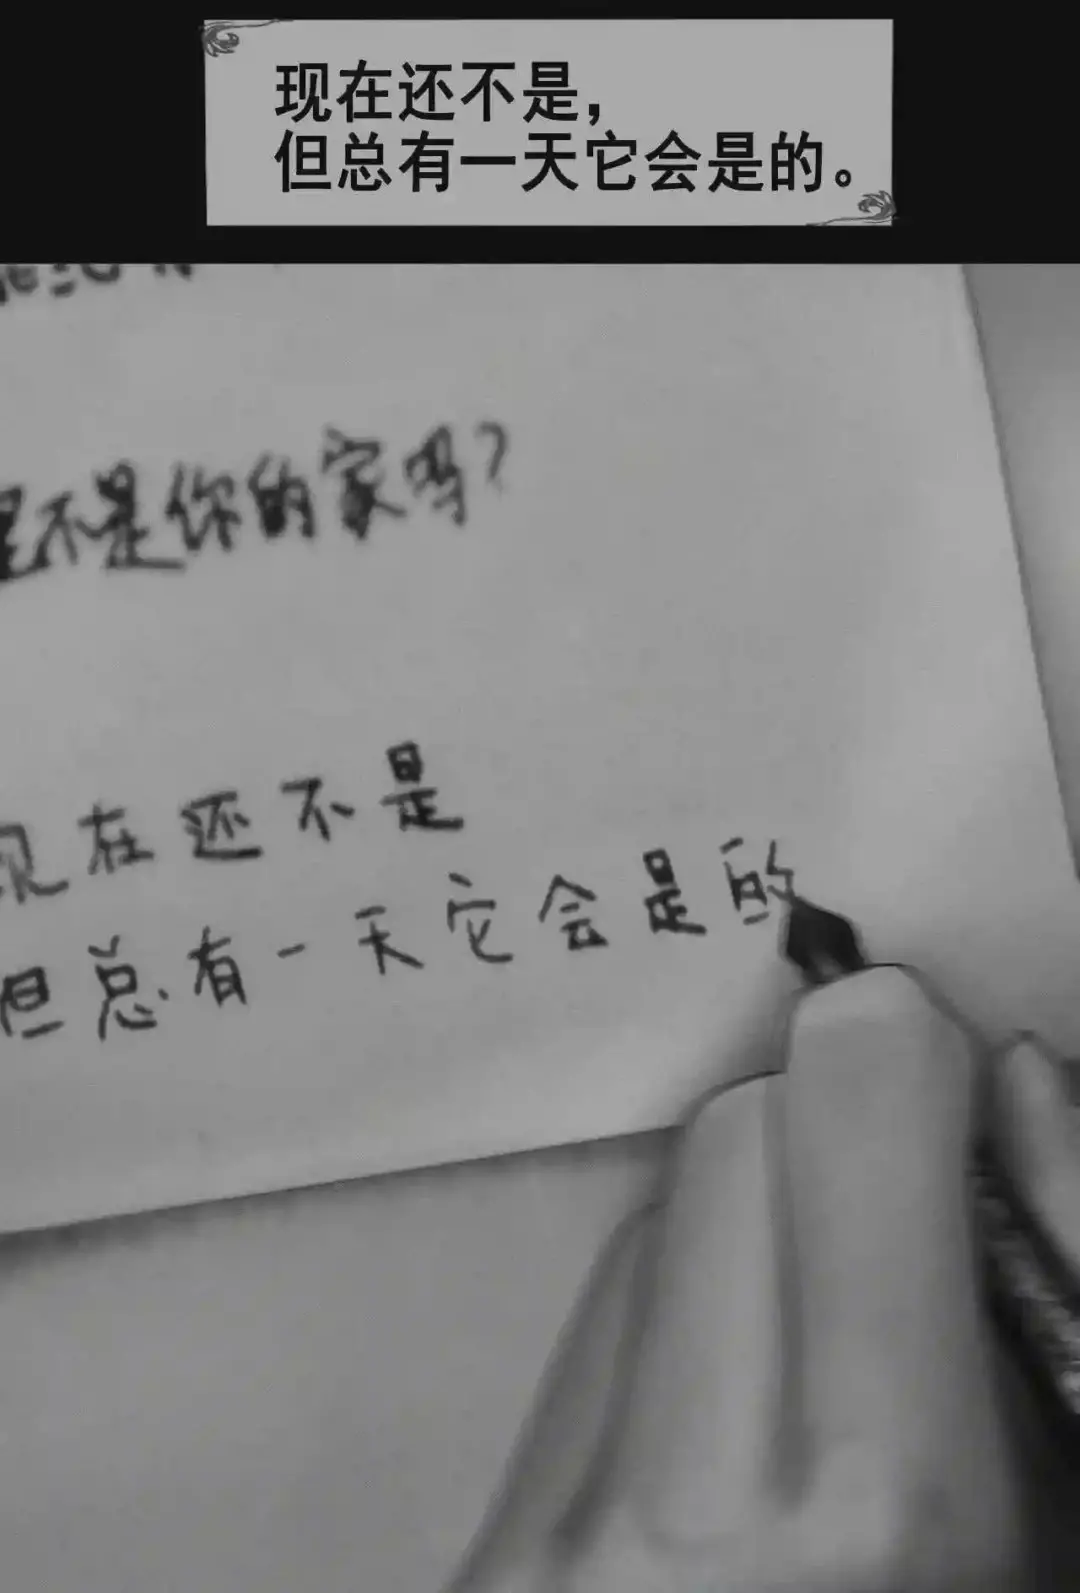 现在还不是，
但总有一天它会是的。
不是你的家吗？
在还不是
但总有一天它会是的